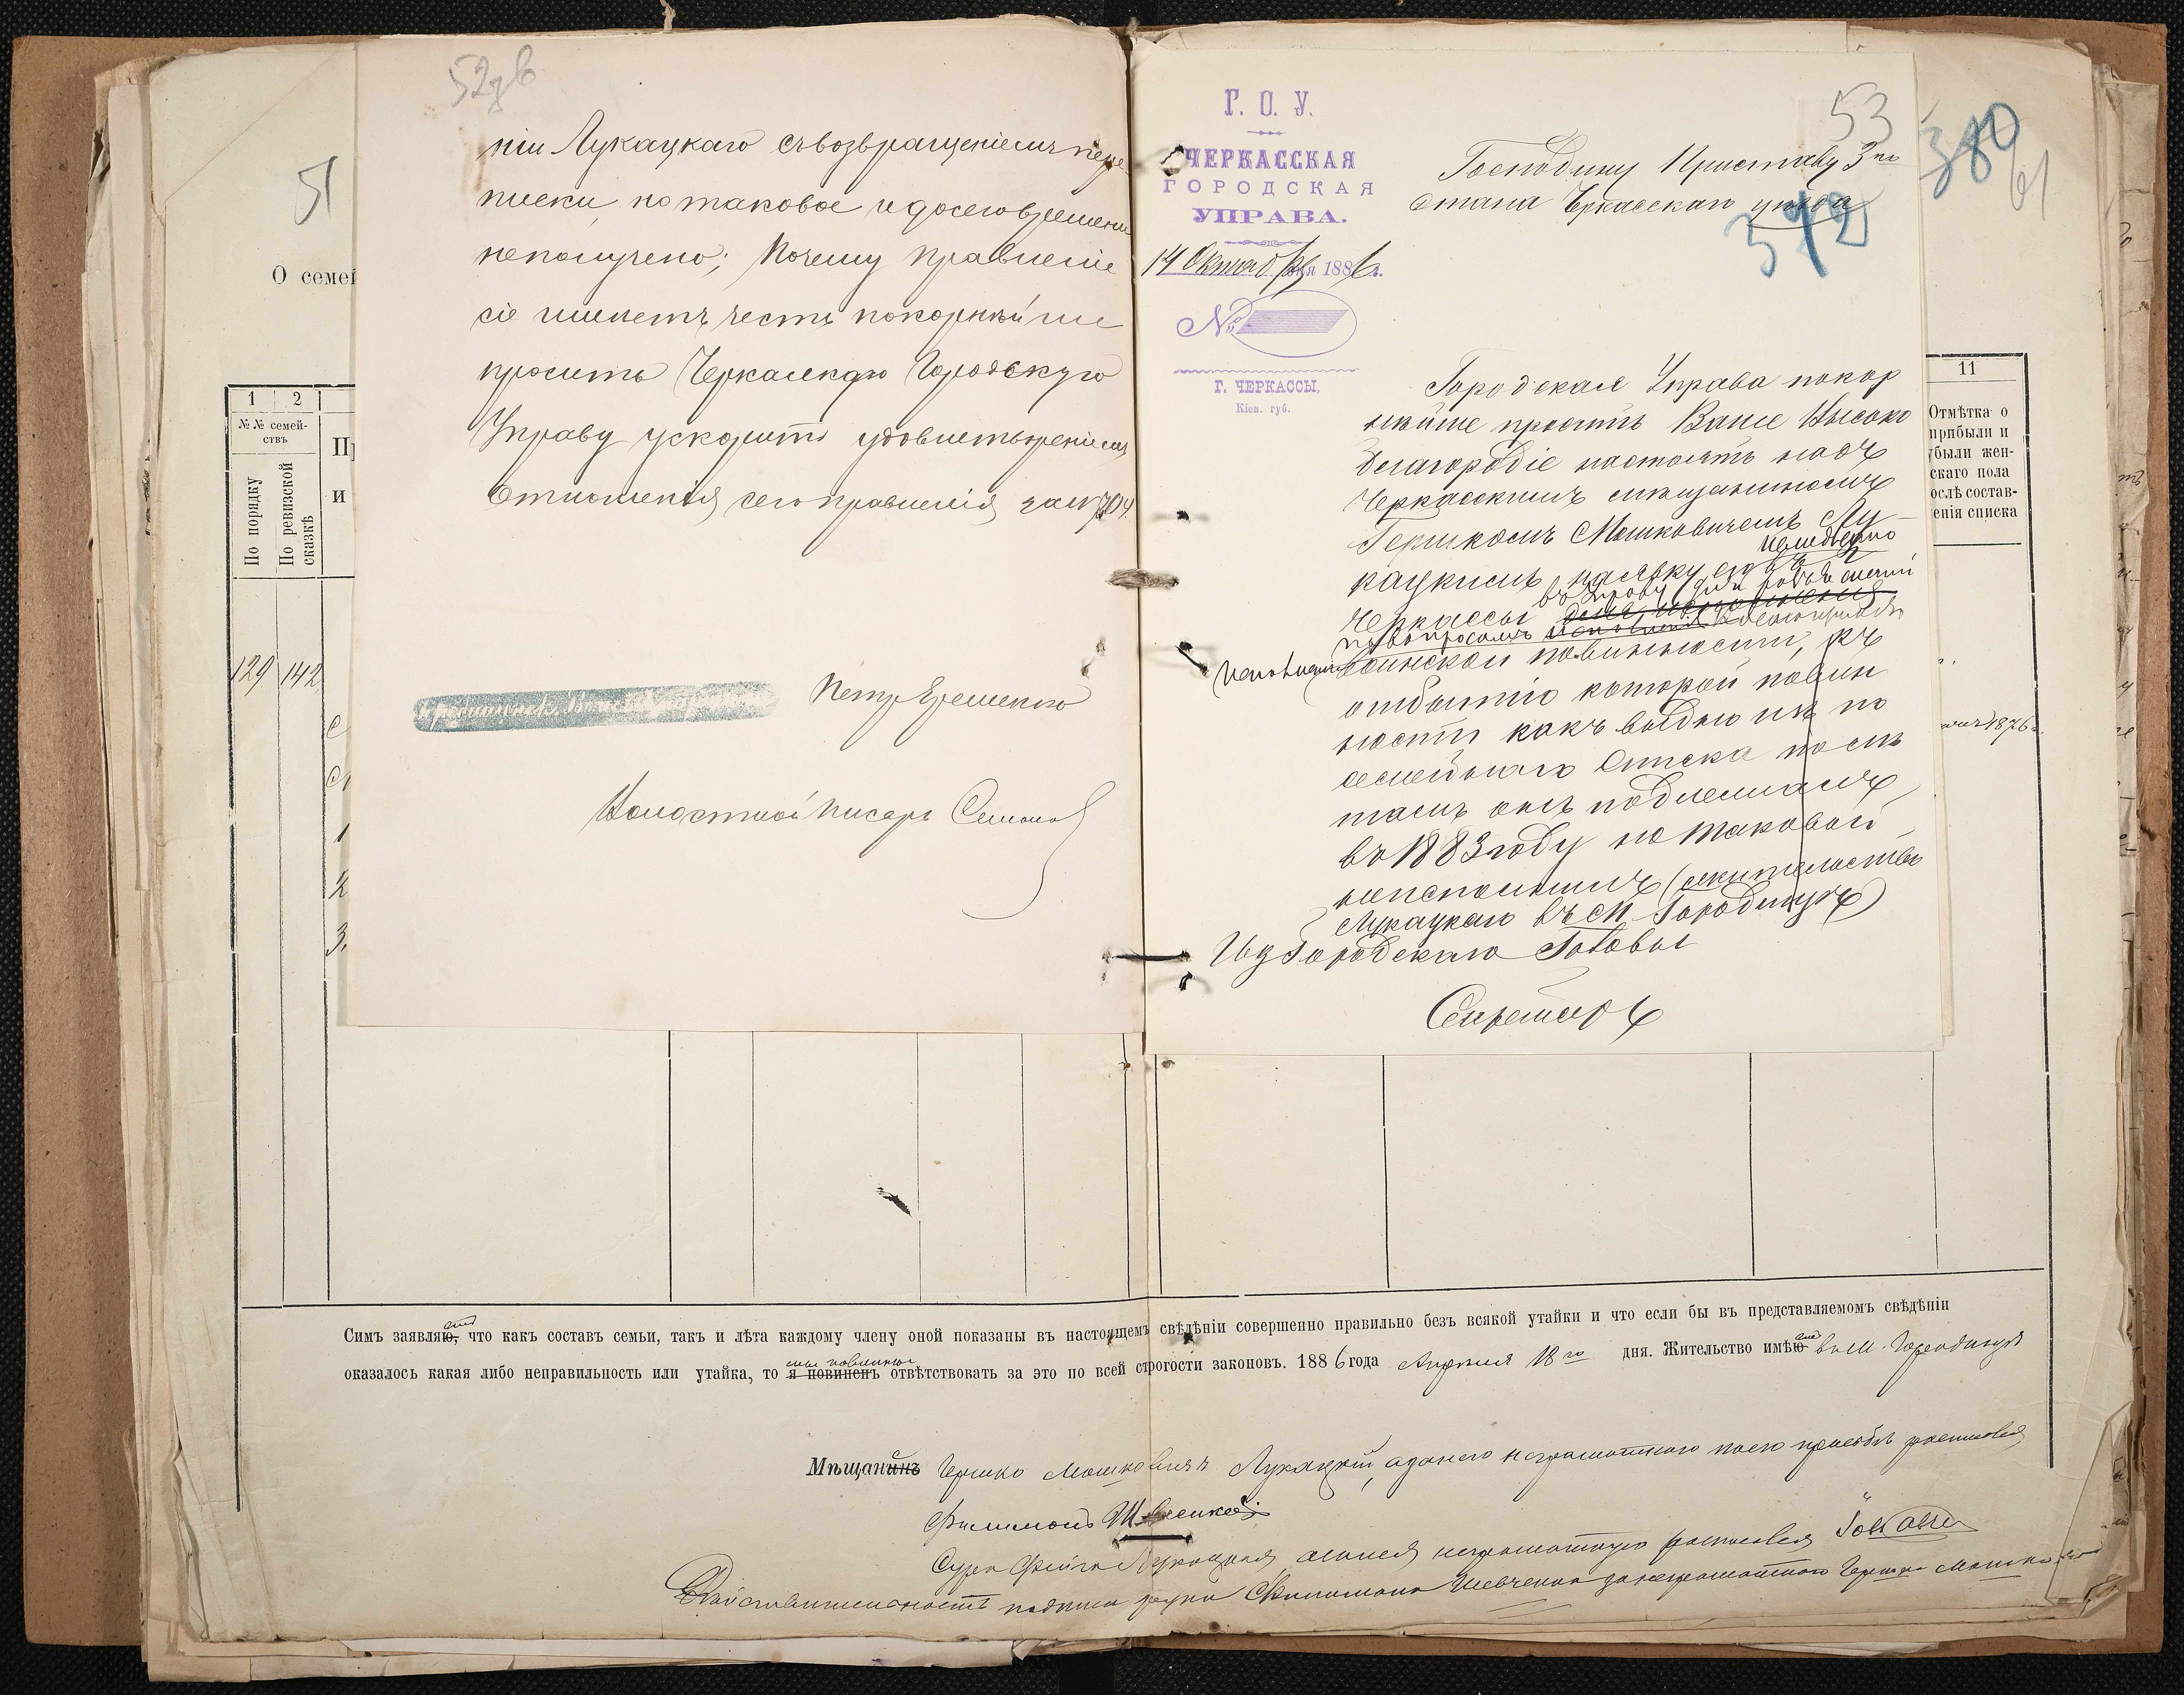 52 зв
ніи Лукацкаго съ возвращеніемъ пере
писки, но таковое и до сего времени
не получено; Почему Правленіе
сіе имѣетъ честь покорнѣйше
просить Черкасскую Городскую
Управу ускорить удовлетвореніемъ
Отношенія сего правленія за №7304.
Петръ Ярешенко
Волостной Писарь Семенов
53
Г. О. У.
ЧЕРКАССКАЯ
ГОРОДСКАЯ
УПРАВА.
14 Октября 1886 г.
№
Г. ЧЕРКАССЫ,
Кіев. губ.
Господину Приставу 3го
Стана Черкасскаго уѣзда
372
380
61
Городская Управа покор
нѣйше проситъ Ваше Высоко
благородіе настоять надъ
Черкасскимъ мѣщаниномъ
Гершкомъ Мошковичемъ Лу-
кацкимъ на явку его въ г.
немедленно
Черкассы
въ Управу для
по вопросамъ
исполненія воинской повинности, къ
отбытію которой повин
ности какъ видно изъ по
семейнаго Списка по лѣ
тамъ онъ подлежалъ
въ 1883 году но таковой
неисполнилъ (жительство
Лукацкаго въ м. Городищѣ)
Ид Городскаго Головы
Секретарь
51
О семей
1
2
11
№№ семей-
ствъ
По порядку
По ревизской
сказкѣ
П
и
Отмѣтка о
прибыли и
убыли жен-
скаго пола
послѣ состав-
ленія списка
129
142
1
2
3.
1876 г.
Симъ заявляю, что какъ составъ семьи, такъ и лѣта каждому члену оной показаны въ настоящемъ свѣдѣніи совершенно правильно безъ всякой утайки и что если бы въ представляемомъ свѣдѣніи
мы повинны
оказалось какая либо неправильность или утайка, то я повиненъ отвѣтствовать за это по всей строгости законовъ. 1886 года Апрѣля 18го дня. Жительство имѣю въ м. Городищѣ
Мѣщанинъ Гершко Мошковичъ Лукацкій, а за него неграмотнаго по его прозьбѣ росписался
Филимонъ Шевченко
Сура Фейга Лукацкая, а за нея неграмотную росписался
Дѣйствительность подписи руки Филимона Шевченка за неграмотнаго Гершка Мошко